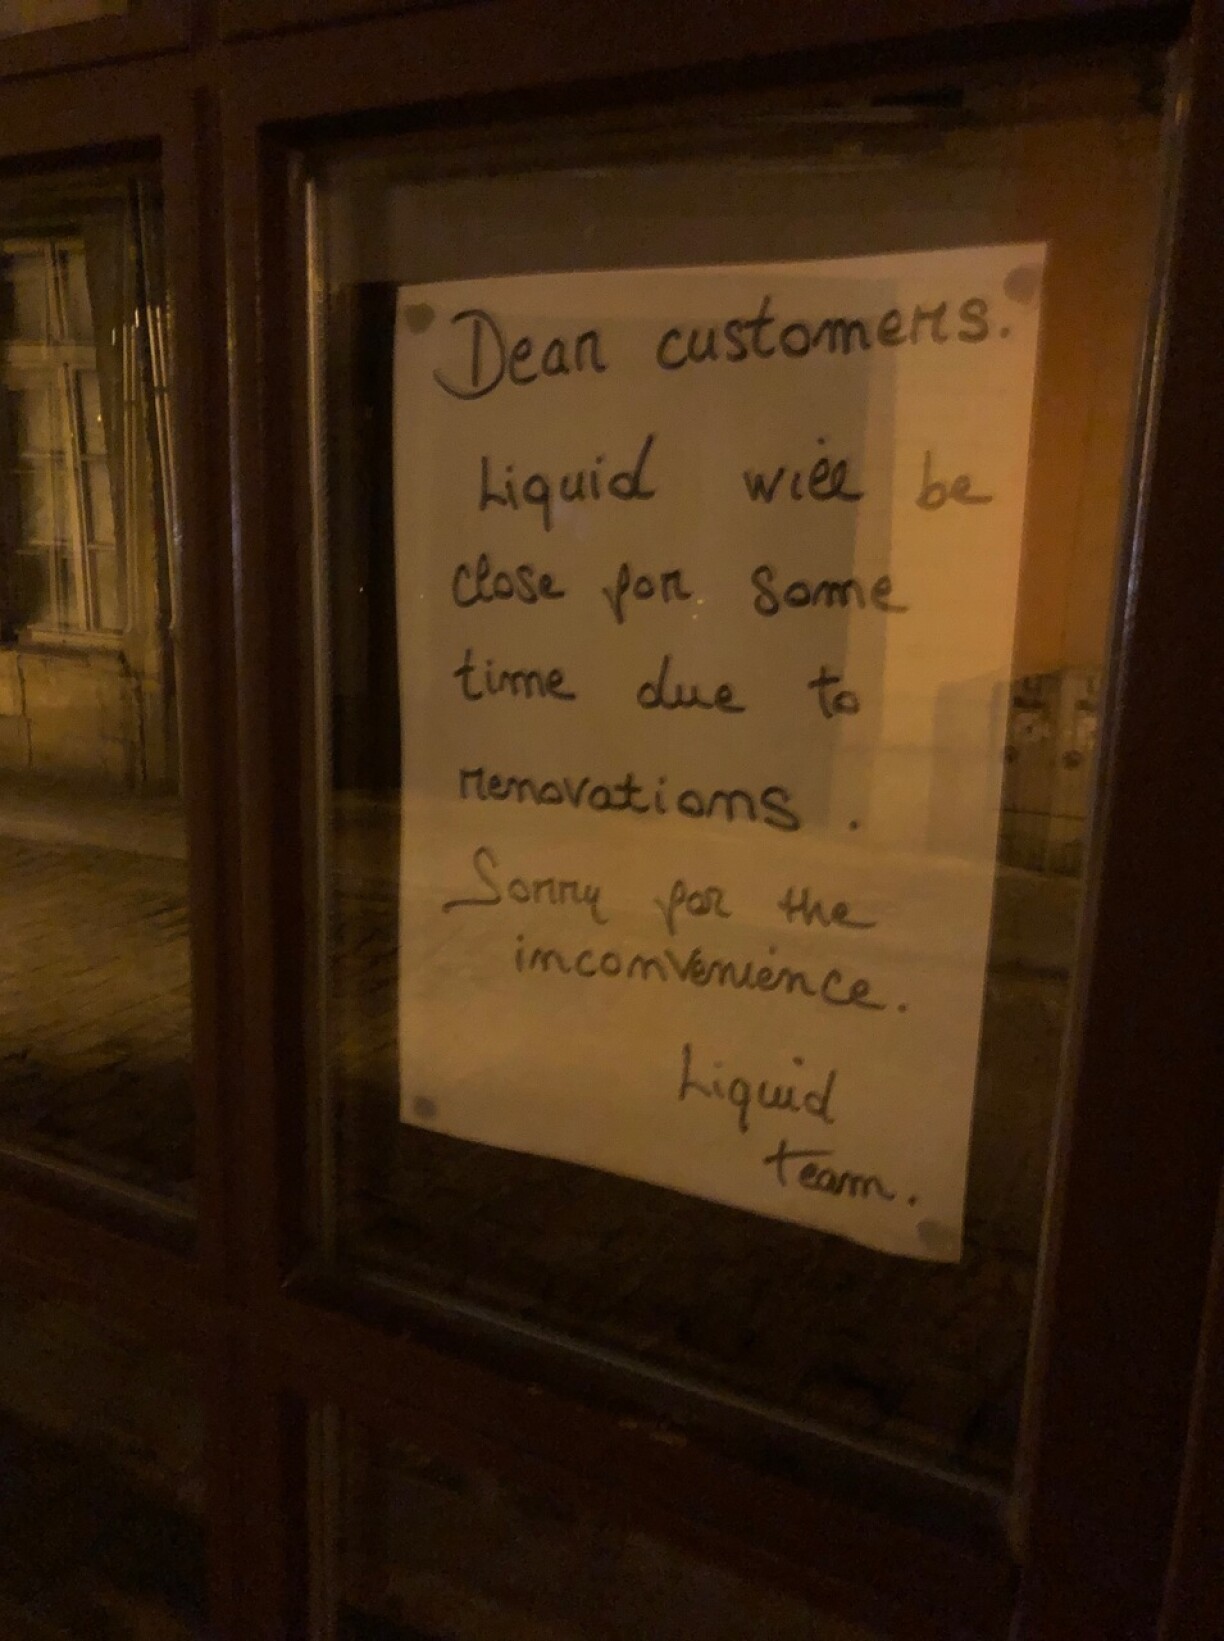 Dear customers.
Liquid will be
close for some
time due to
renovations.
Sorry for the
inconvenience.
Liquid
team.